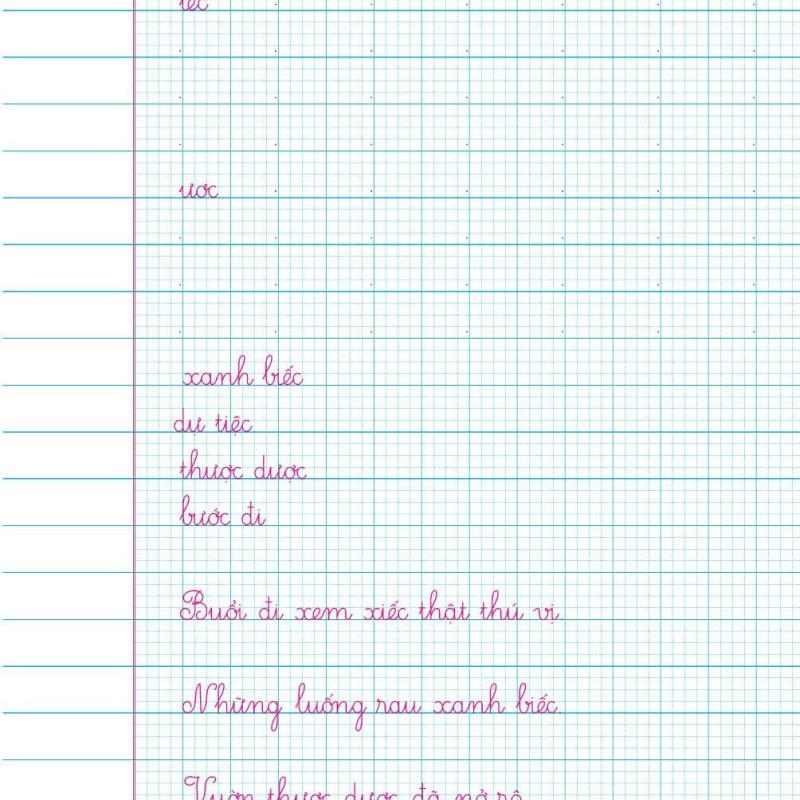 iêc
ươc
xanh biếc
dự tiệc
thược dược
bước đi
Buổi đi xem xiếc thật thú vị.
Những luống rau xanh biếc.
Vườn thược dược đã nở rộ